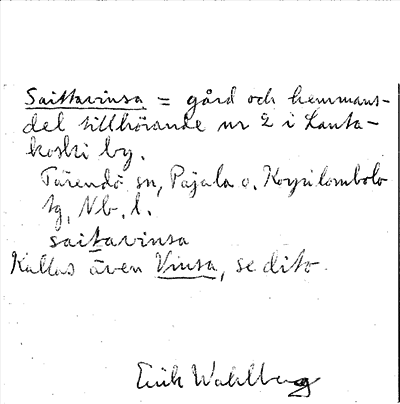 Saittavinsa = gård och hemmans-
del tillhörande nr 2 i Lauta-
koski by.
Tärendö sn, Pajala o. Korpilombolo
tg, Nb. l.
saitavinsa
Kallas även Vinsa, se dito.
Erik Wahlberg